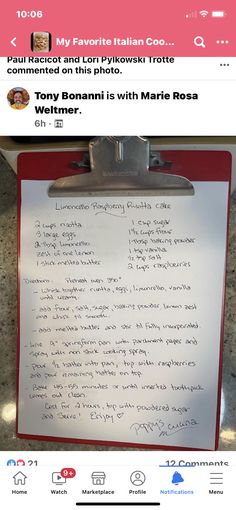 10:06
My Favorite Italian Coo...
Paul Racicot and Lori Pylkowski Trotte
commented on this photo.
Tony Bonanni is with Marie Rosa
Weltmer.
6h
Limoncello Raspberry Ricotta Cake
2 cups ricotta
3 large eggs
2 Tbsp limoncello
zest of one lemon
1 stick melted butter
1 cup sugar
1 1/2 cups flour
1 Tbsp baking powder
1 tsp vanilla
1/2 tsp salt
2 cups raspberries
Directions: Preheat oven 350°
- Whisk together ricotta, eggs, limoncello, vanilla
until creamy.
- add flour, salt, sugar, baking powder, lemon zest
and whisk til smooth.
- add melted butter and stir til fully incorporated.
- Line 9" springform pan with parchment paper and
spray with non stick cooking spray.
- pour 1/2 batter into pan, top with raspberries
and pour remaining batter on top.
Bake 45-55 minutes or until inserted toothpick
comes out clean.
Cool for 2 hours, top with powdered sugar
and Serve! Enjoy
poppy's cucina
21
12 Comments
9+
Home
Watch
Marketplace
Profile
Notifications
Menu